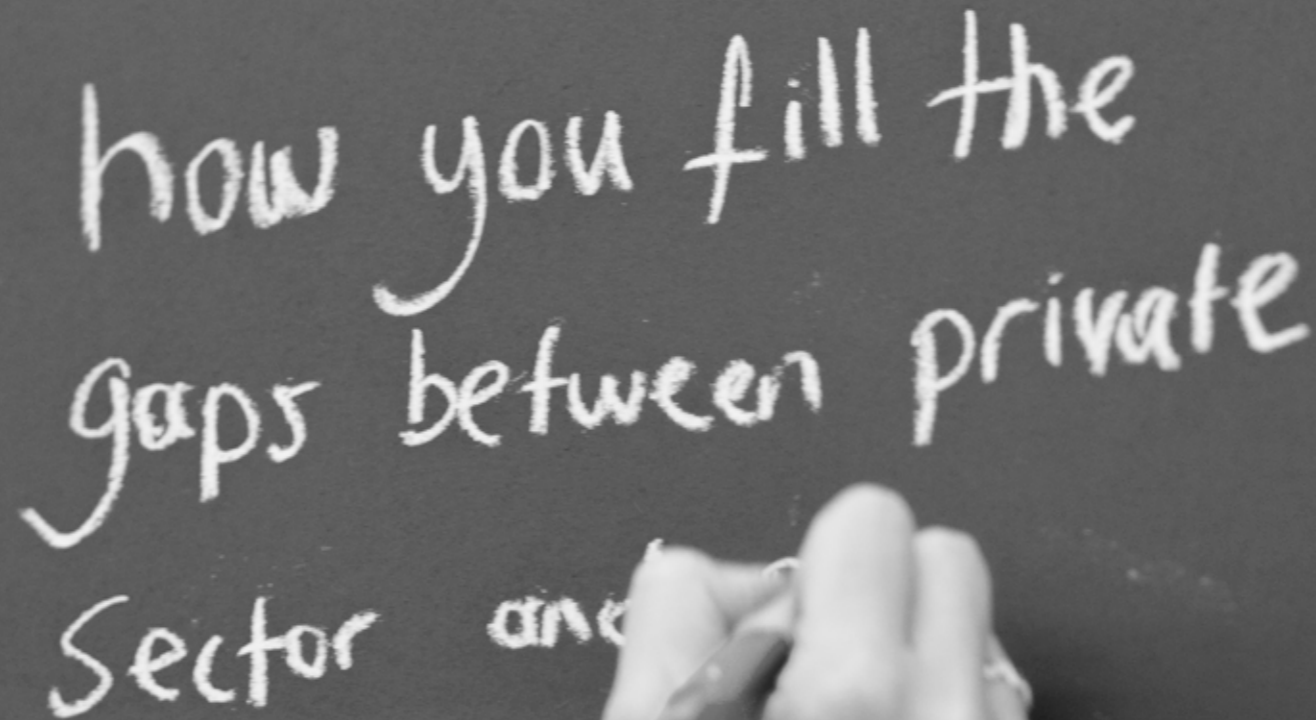 how you fill the
gaps between private
Sector and